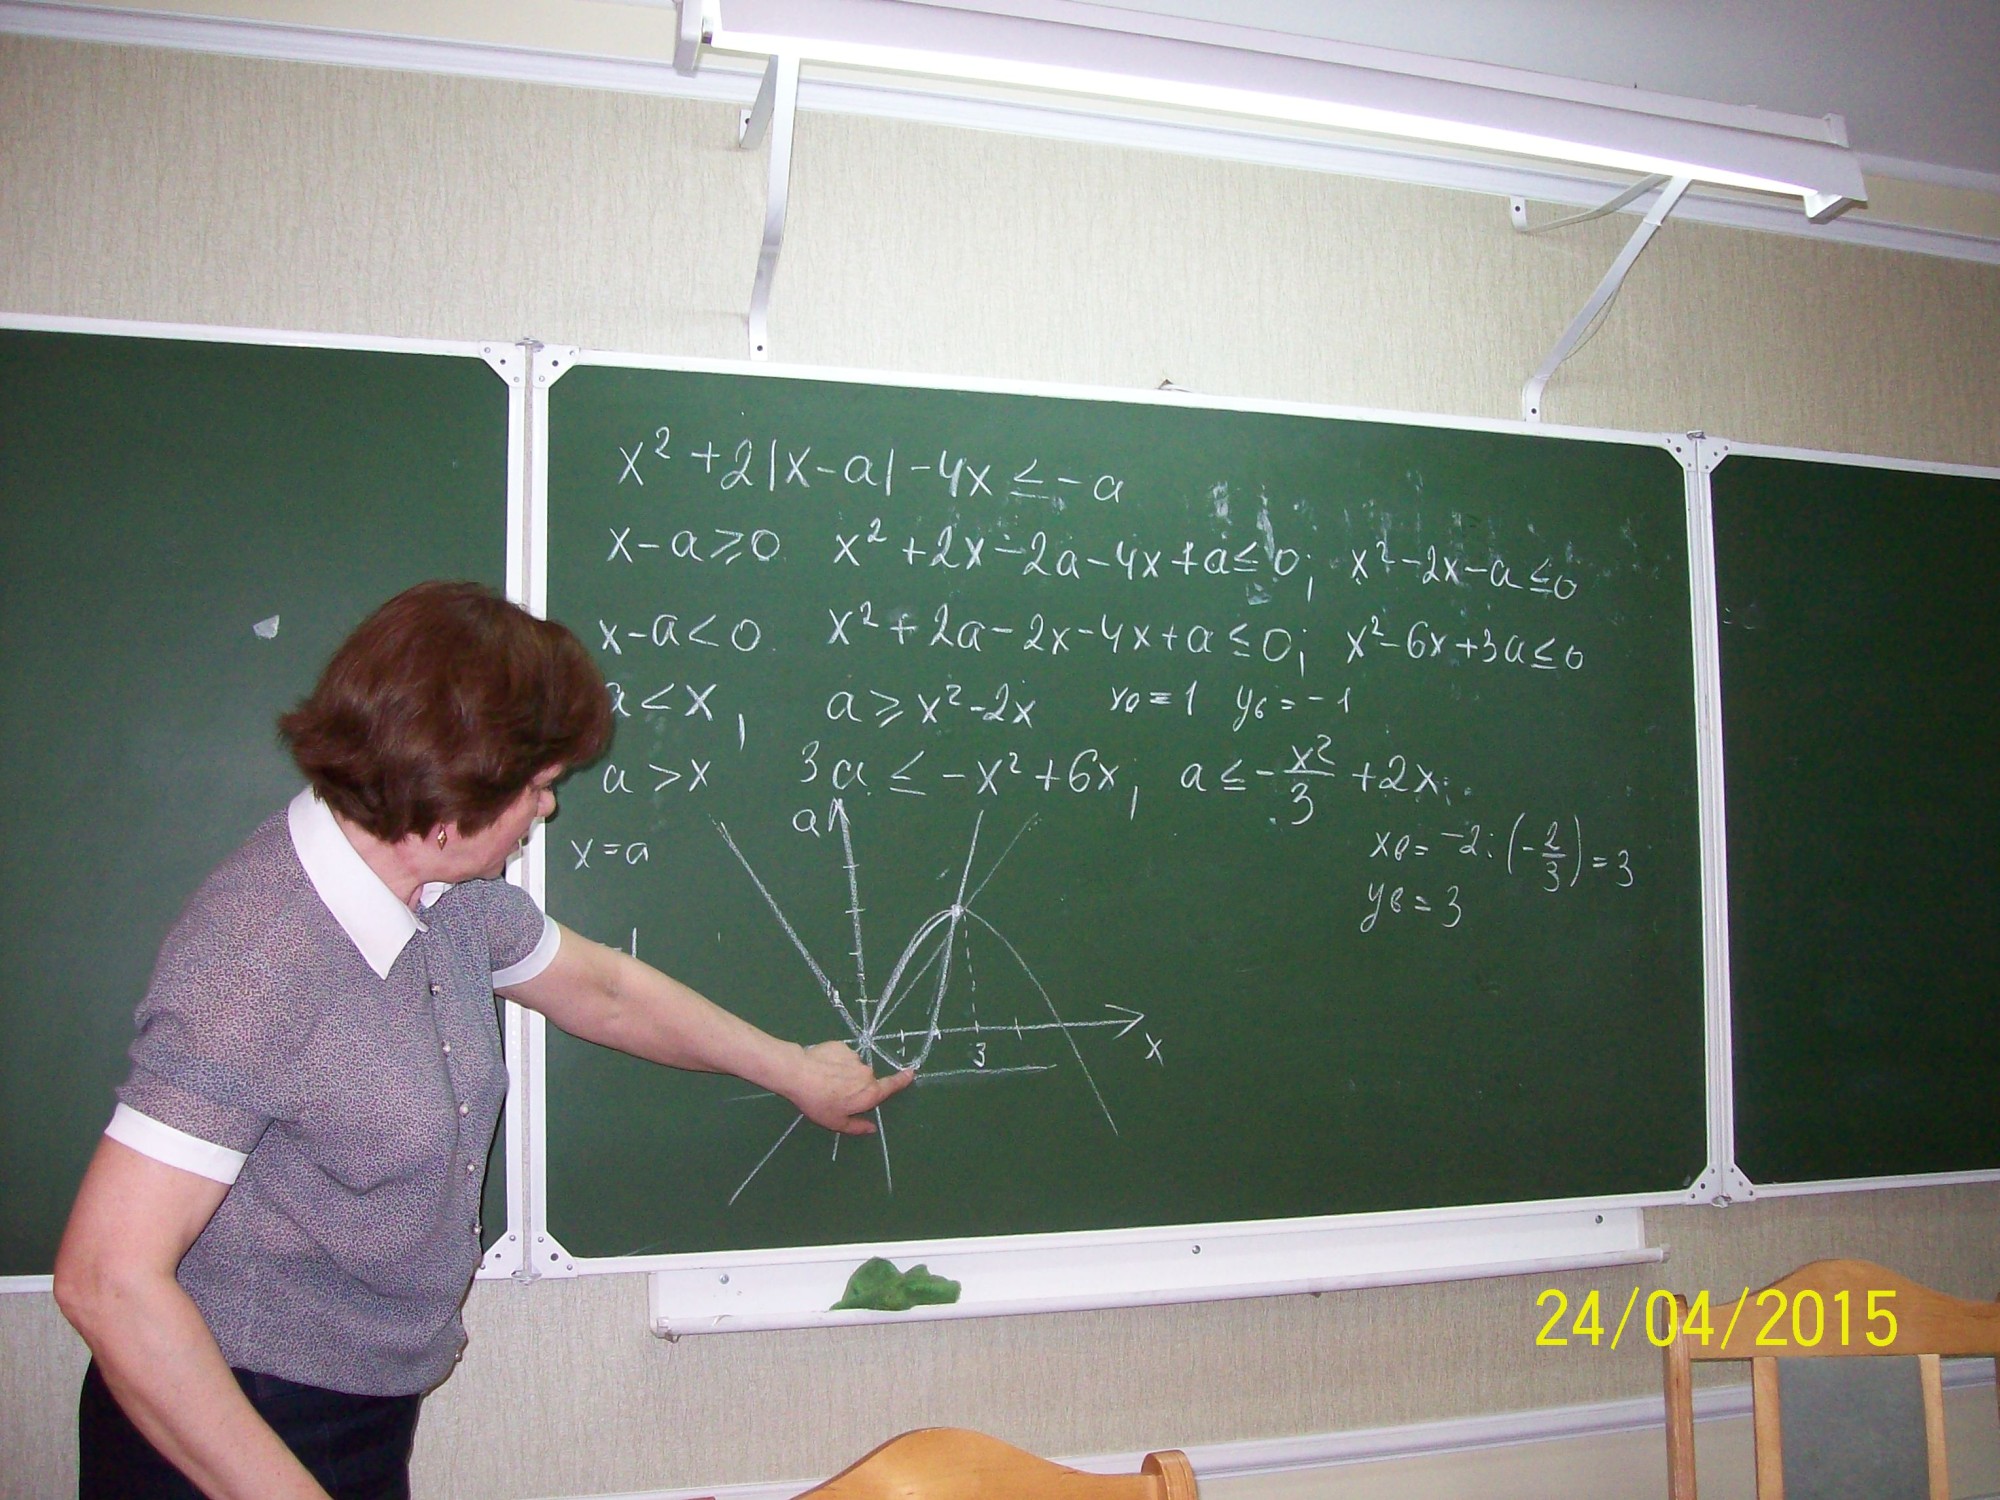 x² + 2|x - a| - 4x ≤ - a
x - a ≥ 0 x² + 2x - 2a - 4x + a ≤ 0; x² - 2x - a ≤ 0
x - a < 0 x² + 2a - 2x - 4x + a ≤ 0; x² - 6x + 3a ≤ 0
a < x, a ≥ x² - 2x xв = 1 yв = - 1
a > x 3a ≤ - x² + 6x, a ≤ - x²/3 + 2x;
x = a
xв = -2 : (- 2/3) = 3
yв = 3
a
1 3
x
24/04/2015